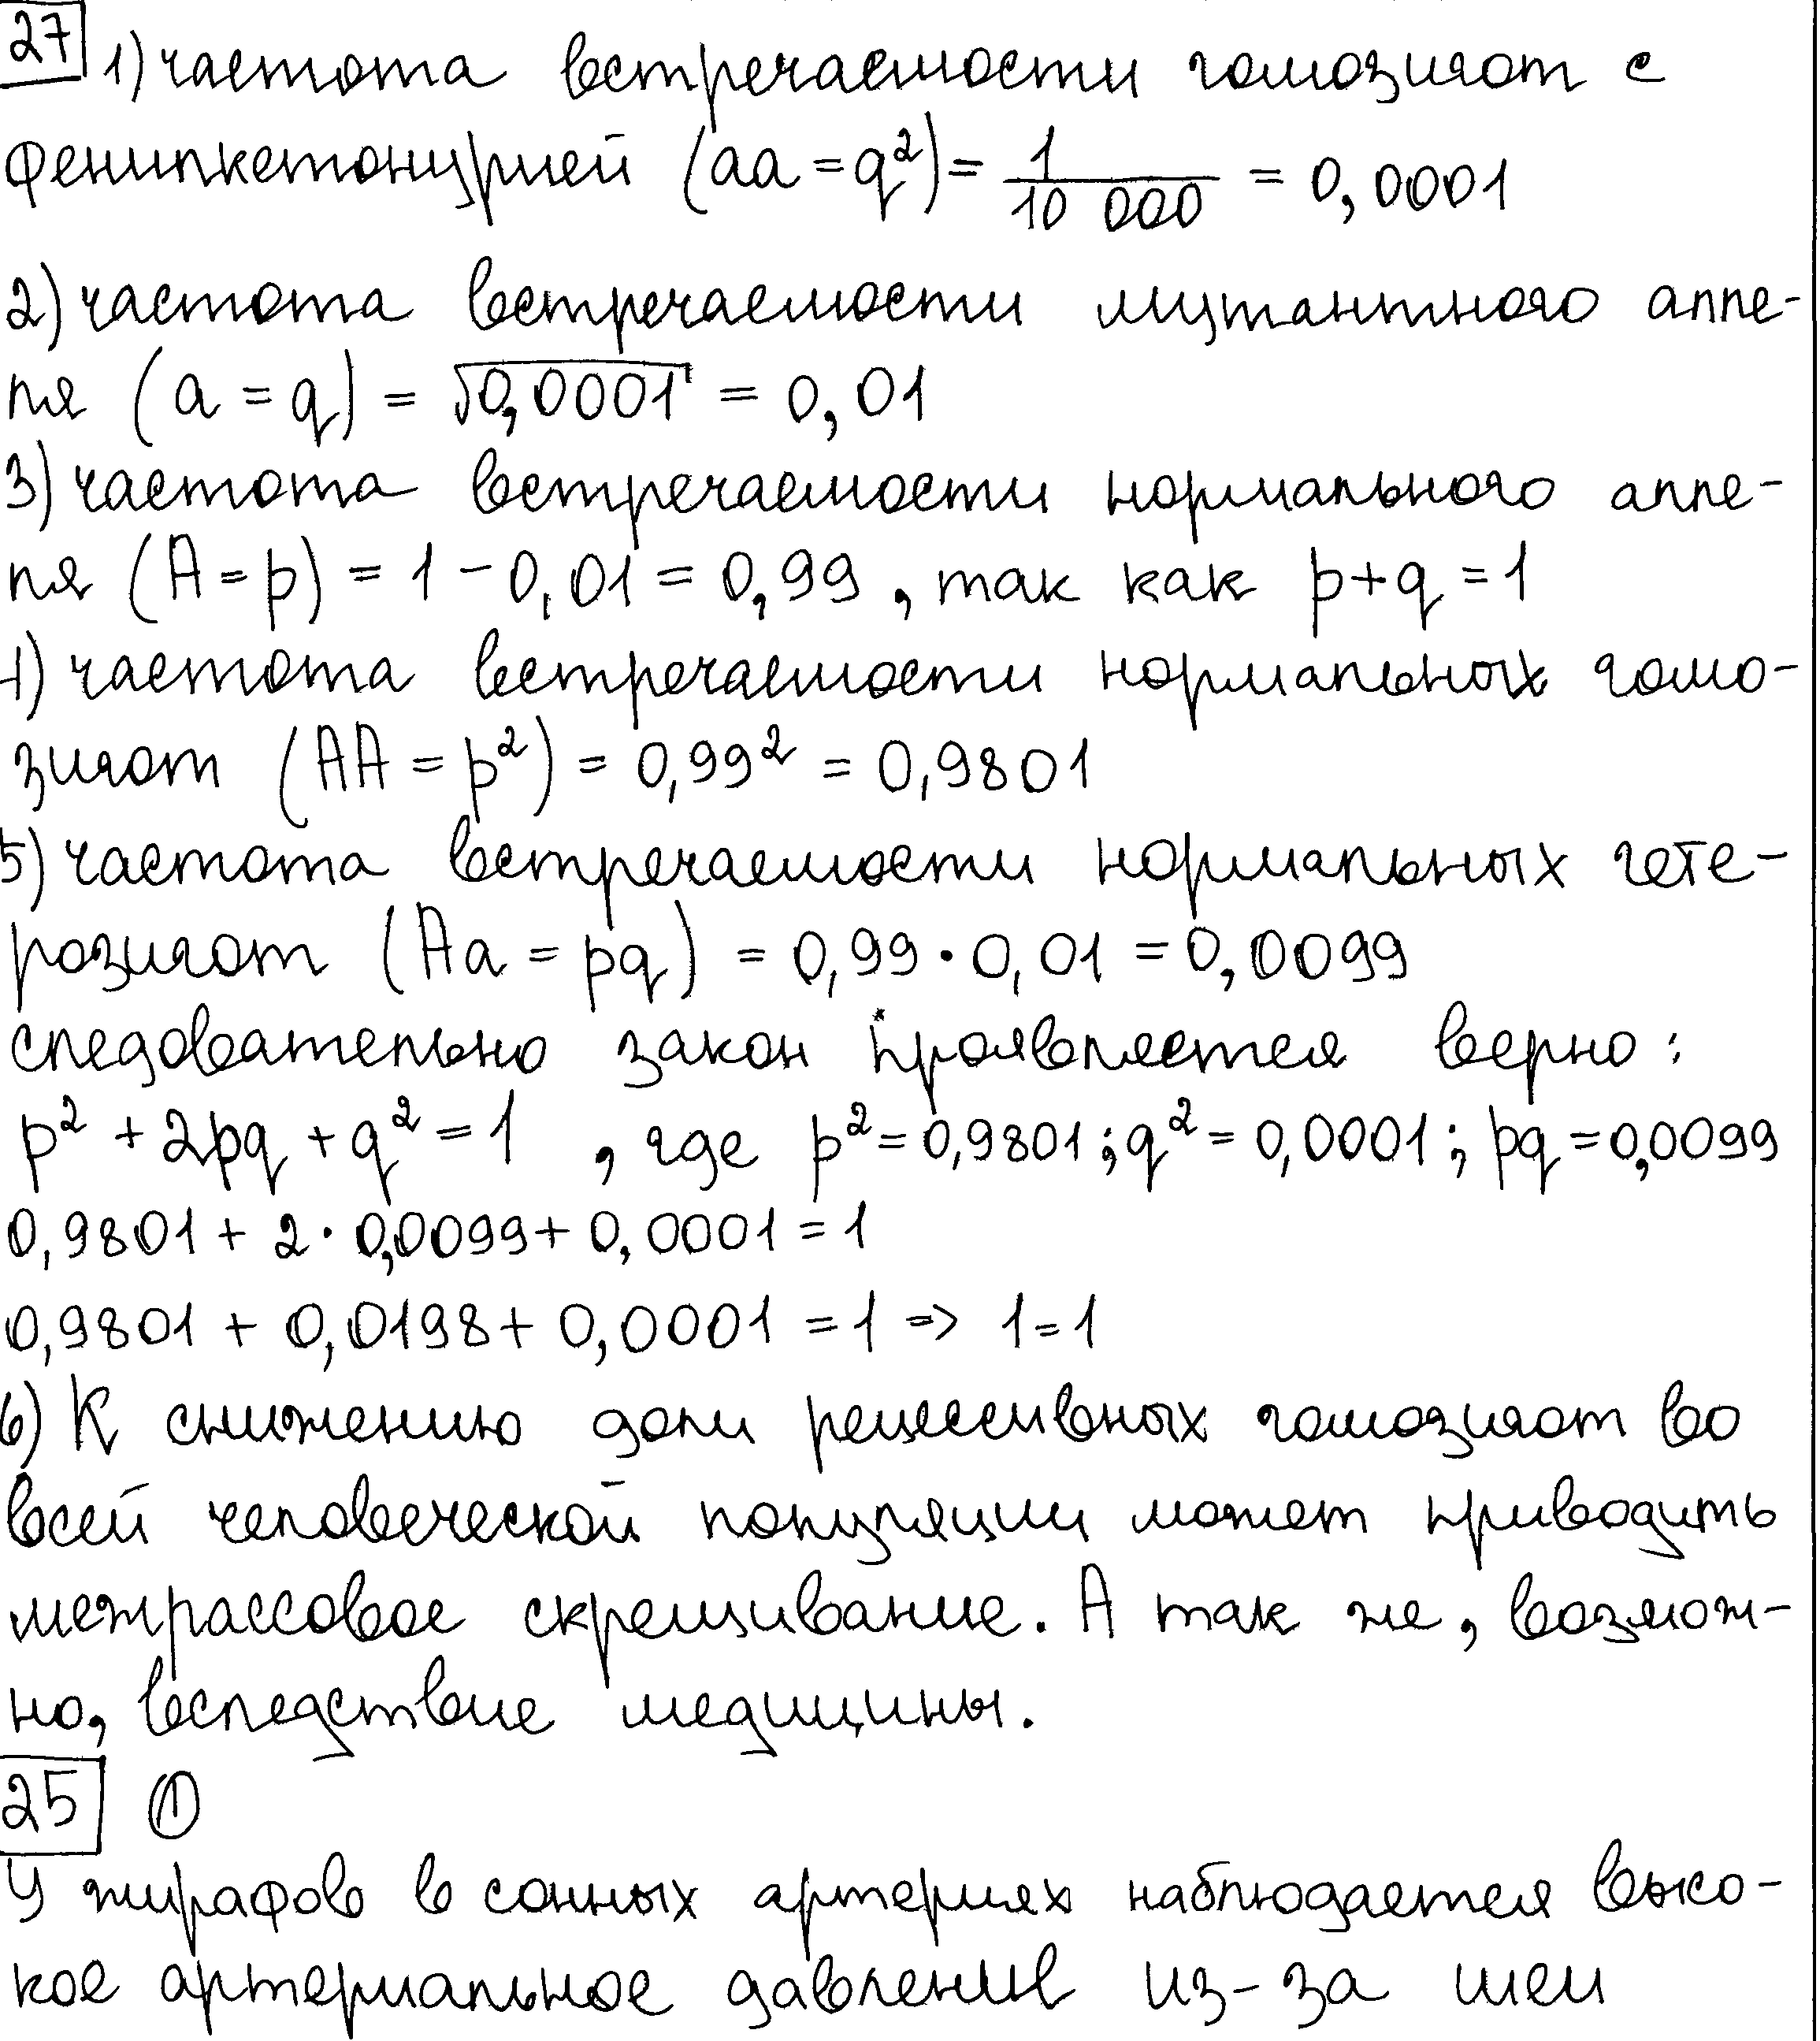 27 1) частота встречаемости гомозигот с
фенилкетонурией (aa = q²) = 1/10 000 = 0,0001
2) частота встречаемости мутантного алле-
ля (a = q) = √0,0001 = 0,01
3) частота встречаемости нормального алле-
ля (A = p) = 1 - 0,01 = 0,99, так как p+q = 1
4) частота встречаемости нормальных гомо-
зигот (AA = p²) = 0,99² = 0,9801
5) частота встречаемости нормальных гете-
розигот (Aa = pq) = 0,99 · 0,01 = 0,0099
следовательно закон проявляется верно:
p² + 2pq + q² = 1, где p² = 0,9801; q² = 0,0001; pq = 0,0099
0,9801 + 2 · 0,0099 + 0,0001 = 1
0,9801 + 0,0198 + 0,0001 = 1 => 1 = 1
6) К снижению доли рецессивных гомозигот во
всей человеческой популяции может приводить
межрассовое скрещивание. А так же, возмож-
но, вследствие медицины.
25 ①
У жирафов в сонных артериях наблюдается высо-
кое артериальное давление из-за шеи